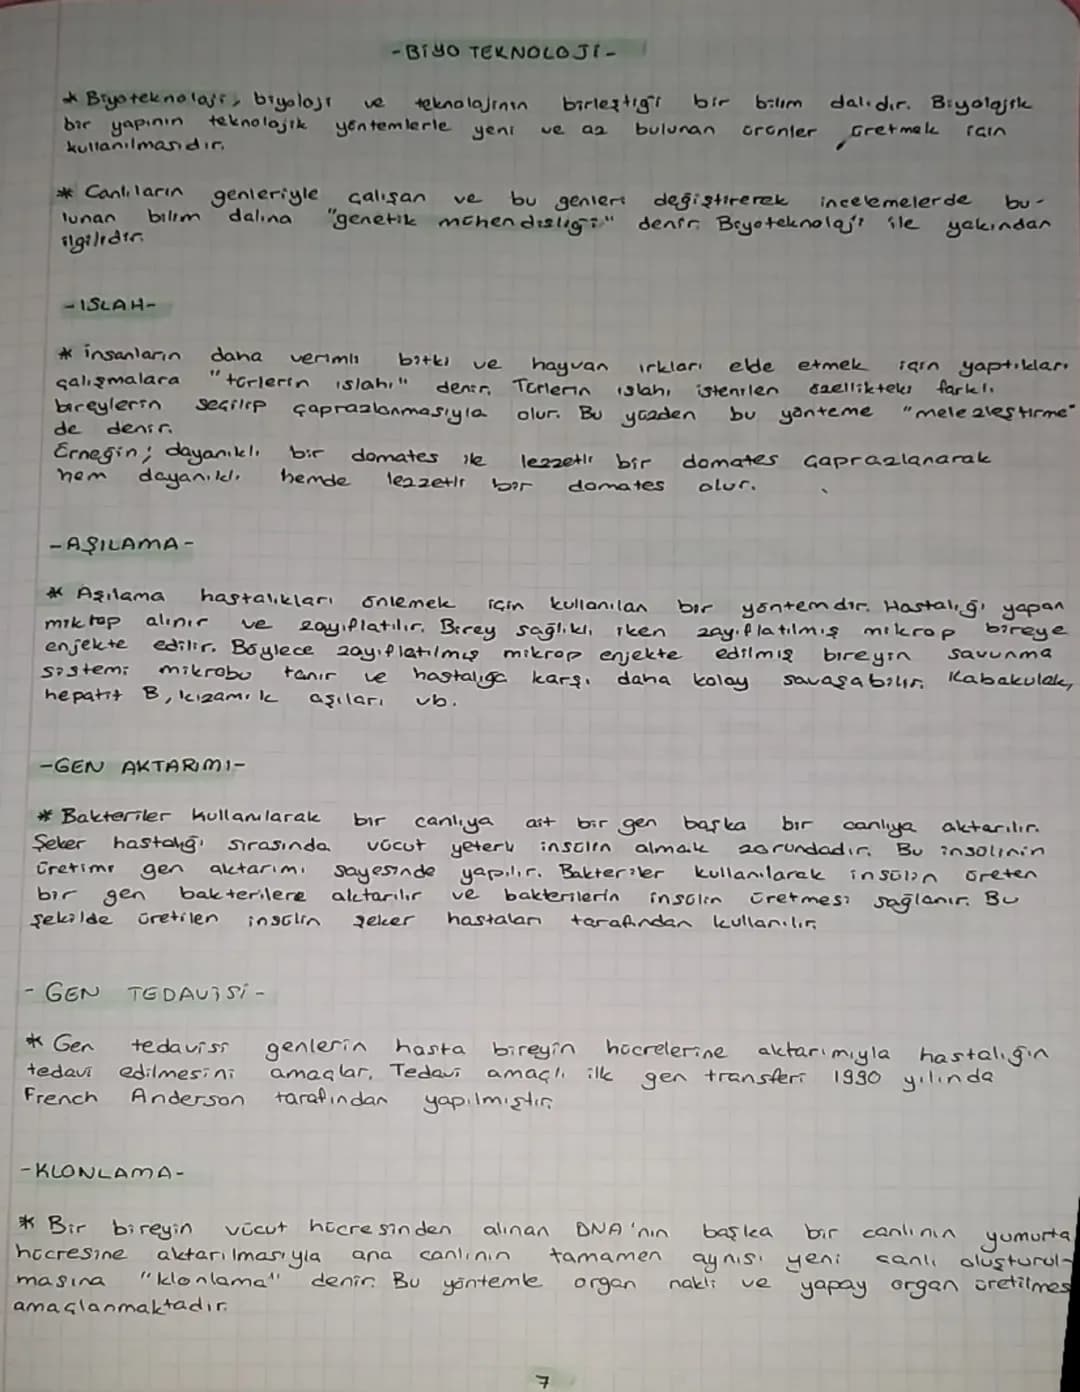 -BİYO TEKNOLOJİ-
* Biyoteknoloji, biyoloji ve teknolojinin birleştiği bir bilim dalıdır. Biyolojik
bir yapının teknolojik yöntemlerle yeni ve az bulunan ürünler üretmek için
kullanılmasıdır.
* Canlıların genleriyle çalışan ve bu genleri değiştirerek incelemelerde bu-
lunan bilim dalına "genetik mühendisliği" denir. Biyoteknoloji ile yakından
ilgilidir.
-ISLAH-
* İnsanların daha verimli bitki ve hayvan ırkları elde etmek için yaptıkları
çalışmalara "türlerin ıslahı" denir. Türlerin ıslahı istenilen özellikteki farklı
bireylerin seçilip çaprazlanmasıyla olur. Bu yüzden bu yönteme "melezleştirme"
de denir.
Örneğin; dayanıklı bir domates ile lezzetli bir domates çaprazlanarak
hem dayanıklı hemde lezzetli bir domates olur.
-AŞILAMA-
* Aşılama hastalıkları önlemek için kullanılan bir yöntemdir. Hastalığı yapan
mikrop alınır ve zayıflatılır. Birey sağlıklı iken zayıflatılmış mikrop bireye
enjekte edilir. Böylece zayıflatılmış mikrop enjekte edilmiş bireyin savunma
sistemi mikrobu tanır ve hastalığa karşı daha kolay savaşabilir. Kabakulak,
hepatit B, kızamık aşıları vb.
-GEN AKTARIMI-
* Bakteriler kullanılarak bir canlıya ait bir gen başka bir canlıya aktarılır.
Şeker hastalığı sırasında vücut yeterli insülin almak zorundadır. Bu insülinin
üretimi gen aktarımı sayesinde yapılır. Bakteriler kullanılarak insülin üreten
bir gen bakterilere aktarılır ve bakterilerin insülin üretmesi sağlanır. Bu
şekilde üretilen insülin şeker hastaları tarafından kullanılır.
- GEN TEDAVİSİ -
* Gen tedavisi genlerin hasta bireyin hücrelerine aktarımıyla hastalığın
tedavi edilmesini amaçlar. Tedavi amaçlı ilk gen transferi 1990 yılında
French Anderson tarafından yapılmıştır.
-KLONLAMA-
* Bir bireyin vücut hücresinden alınan DNA'nın başka bir canlının yumurta
hücresine aktarılmasıyla ana canlının tamamen aynısı yeni canlı oluşturul-
masına "klonlama" denir. Bu yöntemle organ nakli ve yapay organ üretilmes
amaçlanmaktadır.
7